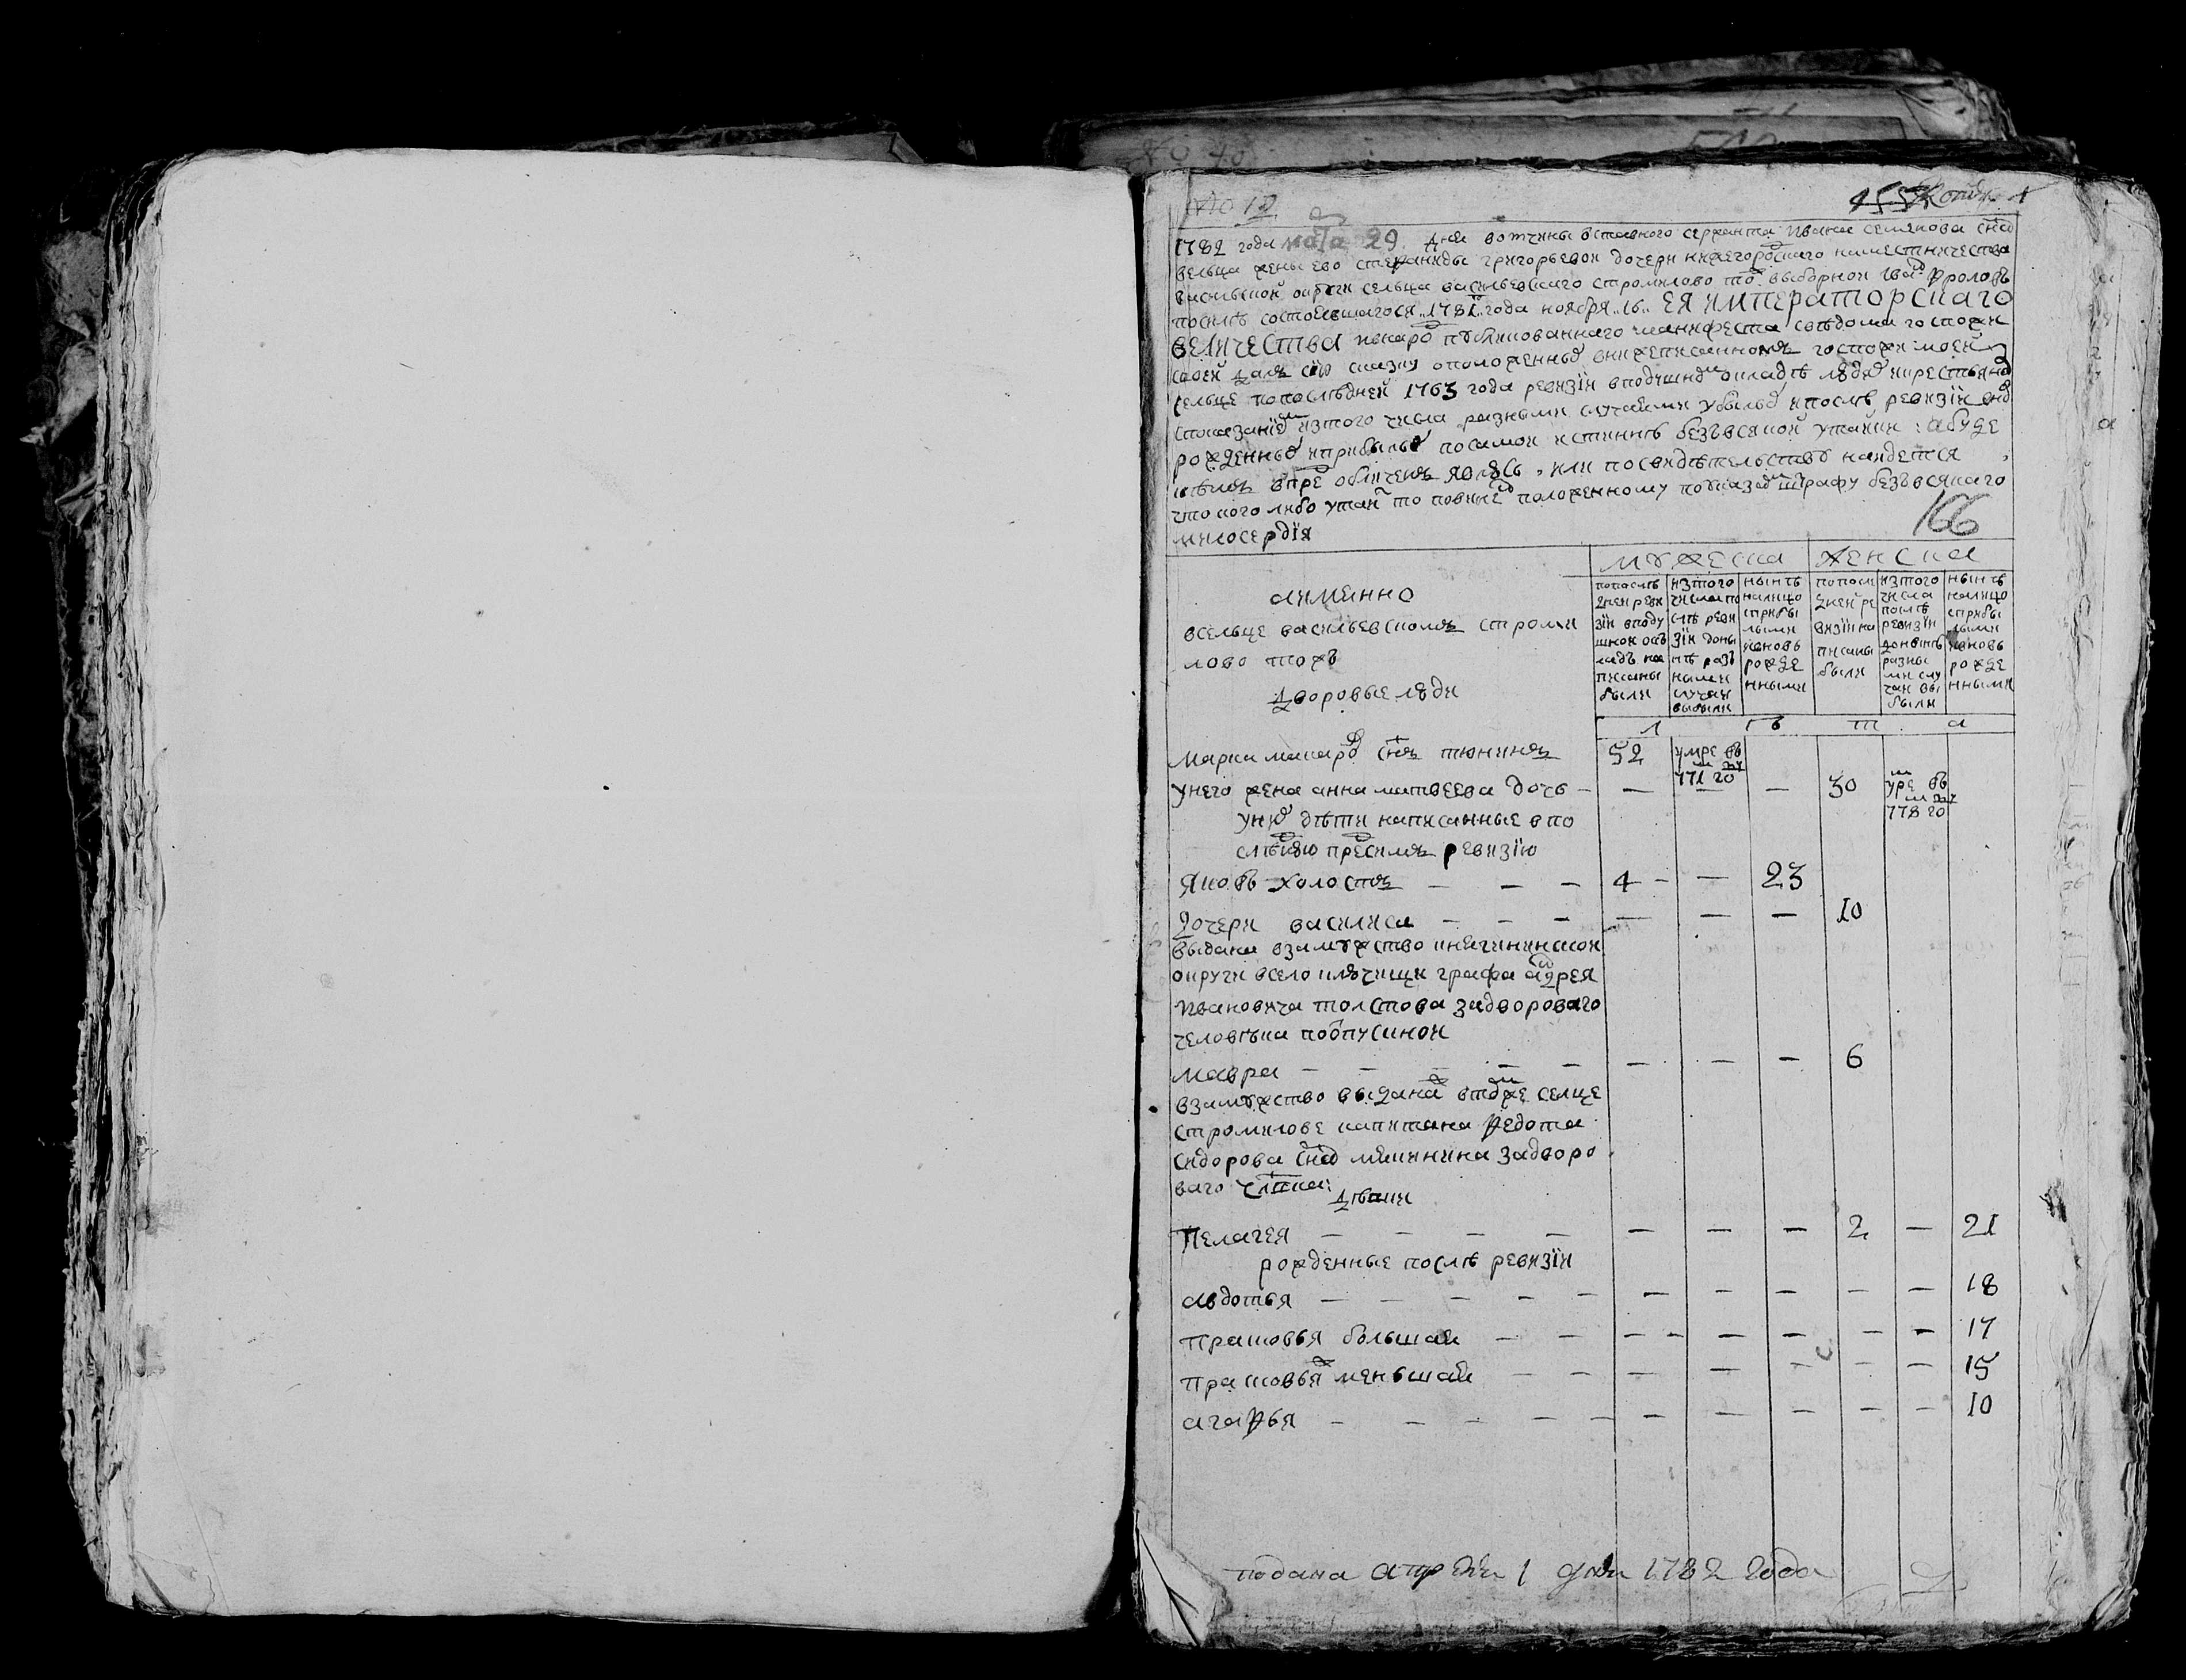 № 12
1782 года марта 29 дня вотчины отставного сержанта ивана семенова сна
вельца жены ево стефаниды григорьевои дочери нижегороцкаго наместничества
васильской округи сельца васильевскаго стромилово тож выборной иван фроловъ
посилѣ состоявшагося 1781 года ноября 16 ЕЯ ИМПЕРАТОРСКАГО
ВЕЛИЧЕСТВА инаро публикованнаго манифеста сведома госпожи
своей далъ сию сказку оположенных внижеписанномъ госпожи моей
сельце попоследней 1763 года ревизіи вподушном окладѣ людех икрестьянех
споказаниемъ изтого числа разными случаями убылых ипослѣ ревизіи вновь
рожденных иприбылых посамой истиннѣ безъ всякой утайки : абуде
кѣмъ впредь обличенъ явлюсь или посвидѣтельству найдется
что кого либо утаил то повинен положенному поуказам штрафу безъ всякаго
милосердія
166
мужеска женска
аимянно
всельце васильевскомъ строми
лово тожъ
дворовые люди
попослѣ
дней реви
зіи вподу
шной окъ
ладъ на
писаны
были
изтого
числа по
слѣ реви
зіи доны
нѣ разъ
ными
случаи
выбыли
нынѣ
налицо
сприбы
лыми
ивновь
рожде
нными
попосле
дней ре
визіи на
писаны
были
изтого
числа
послѣ
ревизіи
донынѣ
разны
ми слу
чаи вы
были
нынѣ
налицо
сприбы
лыми
ивновь
рожде
нными
л ѣ т а
марка макаров снъ тюнинъ 52 умре въ 771 году
унего жена анна матвеева дочь — — — 30 умре въ 778 году
уних дѣти написанные впо
слѣднюю пред симъ ревизію
Яковъ холостъ — — — 4 — — 23
дочери василиса — — — — — — 10
выдана взамужство княгининской
округи всело ключищи графа андрея
ивановича толстова задвороваго
человѣка поотпускной
мавра — — — — — — — — 6
взамужство выдана втомже селце
стромилове капитана федота
сидорова сна мякинина задворо
ваго члвка
дѣвки
Пелагея — — — — — — — 2 — 21
рожденные послѣ ревизіи
авдотья — — — — — — — — — — 18
прасковья большая — — — — — — — — 17
прасковья меньшая — — — — — — — 15
агафья — — — — — — — — — — 10
подана апреля 1 дня 1782 года